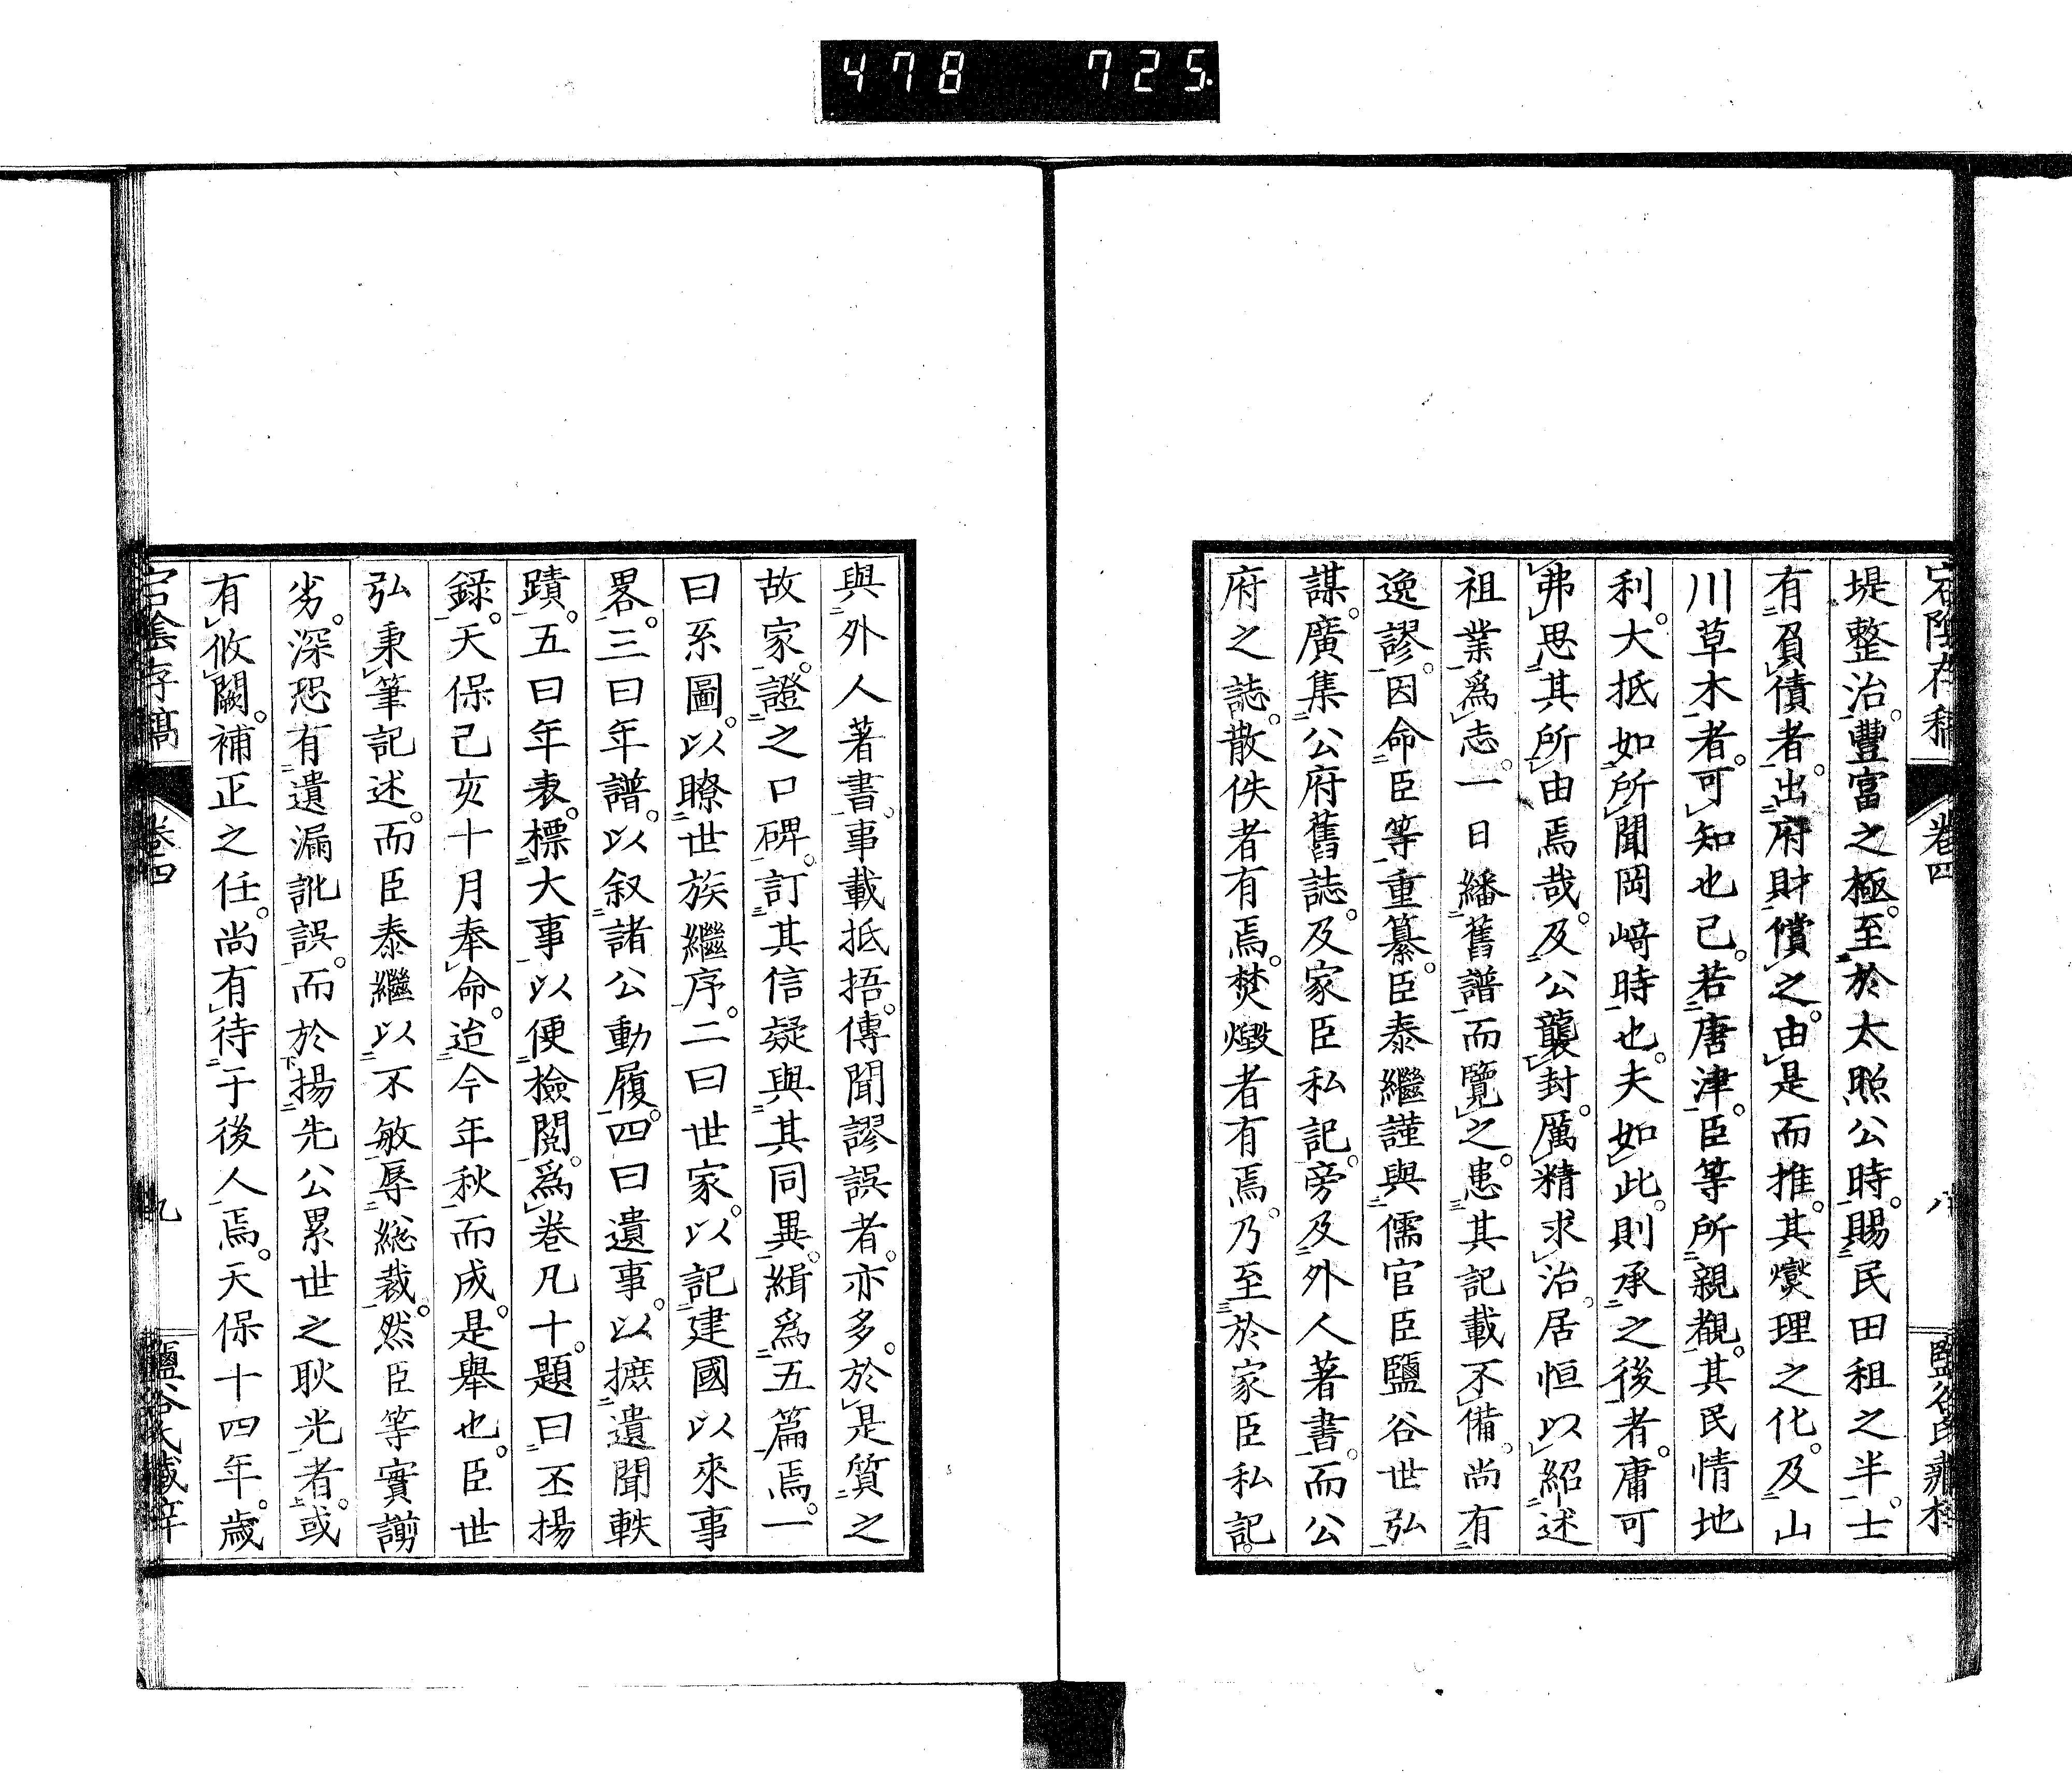 478 725.
宕陰存稿 卷四 八 鹽谷氏藏梓
堤整治。豐富之極。至於太照公時。賜民田租之半。士
有負債者。出府財償之。由是而推。其爕理之化。及山
川草木者。可知也已。若唐津。臣等所親覩。其民情地
利。大抵如所聞岡﨑時也。夫如此。則承之後者。庸可
弗思其所所由焉哉。及公襲封。厲精求治。居恒以紹述
祖業爲志。一日繙舊譜而覽之。患其記載不備。尚有
逸謬。因命臣等重纂。臣泰繼謹與儒官臣鹽谷世弘
謀。廣集公府舊誌。及家臣私記。旁及外人著書。而公
府之誌。散佚者有焉。焚燬者有焉。乃至於家臣私記。
與外人著書。事載抵捂。傳聞謬誤者。亦多。於是質之
故家。證之口碑。訂其信疑與其同異。緝爲五篇焉。一
曰系圖。以瞭世族繼序。二曰世家。以記建國以來事
畧。三曰年譜。以叙諸公動履。四曰遺事。以摭遺聞軼
蹟。五曰年表。標大事以便檢閲。爲卷凡十。題曰丕揚
錄。天保己亥十月奉命。迨今年秋而成。是舉也。臣世
弘秉筆記述。而臣泰繼以不敏辱總裁。然臣等實謭
劣。深恐有遺漏訛誤。而於揚先公累世之耿光者。或
有攸闕。補正之任。尚有待于後人焉。天保十四年。歲
宕陰存稿 卷四 九 鹽谷氏藏梓